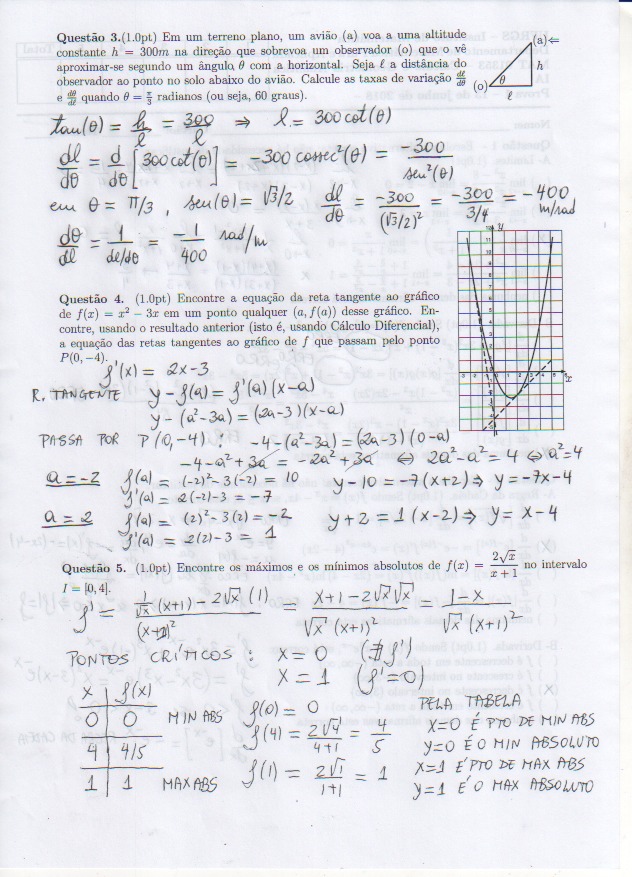 Questão 3.(1.0pt) Em um terreno plano, um avião (a) voa a uma altitude
constante h = 300m na direção que sobrevoa um observador (o) que o vê
aproximar-se segundo um ângulo, θ com a horizontal. Seja ℓ a distância do
observador ao ponto no solo abaixo do avião. Calcule as taxas de variação dℓ/dθ
e dθ/dℓ quando θ = π/3 radianos (ou seja, 60 graus).
(a)⇐
h
(o) θ
ℓ
tan(θ) = h/l = 300/l ⇒ l = 300 cot(θ)
dl/dθ = d/dθ [300 cot(θ)] = -300 cossec²(θ) = -300/sen²(θ)
em θ = π/3 , sen(θ) = √3/2 dl/dθ = -300/(√3/2)² = -300/3/4 = -400 m/rad
dθ/dl = 1/dl/dθ = -1/400 rad/m
Questão 4. (1.0pt) Encontre a equação da reta tangente ao gráfico
de f(x) = x² − 3x em um ponto qualquer (a, f(a)) desse gráfico. En-
contre, usando o resultado anterior (isto é, usando Cálculo Diferencial),
a equação das retas tangentes ao gráfico de f que passam pelo ponto
P(0, −4).
y
x
f'(x) = 2x-3
R. TANGENTE y - f(a) = f'(a)(x-a)
y - (a²-3a) = (2a-3)(x-a)
PASSA POR P(0,-4) : -4-(a²-3a) = (2a-3)(0-a)
-4-a²+3a = -2a²+3a ⇔ 2a²-a² = 4 ⇔ a²=4
a = -2 f(a) = (-2)²-3(-2) = 10 y-10 = -7(x+2) ⇒ y = -7x-4
f'(a) = 2(-2)-3 = -7
a = 2 f(a) = (2)²-3(2) = -2 y+2 = 1(x-2) ⇒ y = x-4
f'(a) = 2(2)-3 = 1
Questão 5. (1.0pt) Encontre os máximos e os mínimos absolutos de f(x) = 2√x/x + 1 no intervalo
I = [0, 4].
f' = 1/√x (x+1) - 2√x (1)/(x+1)² = x+1-2√x√x/√x (x+1)² = 1-x/√x (x+1)²
PONTOS CRÍTICOS : x = 0 (∄ f')
x = 1 (f'=0)
x f(x)
0 0 MIN ABS
4 4/5
1 1 MAX ABS
f(0) = 0
f(4) = 2√4/4+1 = 4/5
f(1) = 2√1/1+1 = 1
PELA TABELA
x=0 É PTO DE MIN ABS
y=0 É O MIN ABSOLUTO
x=1 É PTO DE MAX ABS
y=1 É O MAX ABSOLUTO